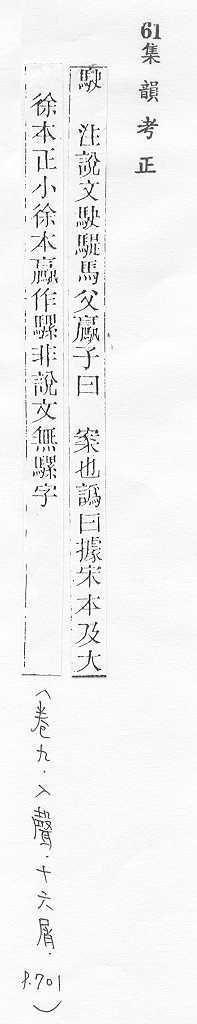 61集韻考正
駃　注說文駃騠馬父𩦺子曰　案也譌曰據宋本及大
徐本正小徐本𩦺作騾非說文無騾字
（卷九．入聲．十六屑．P.701）